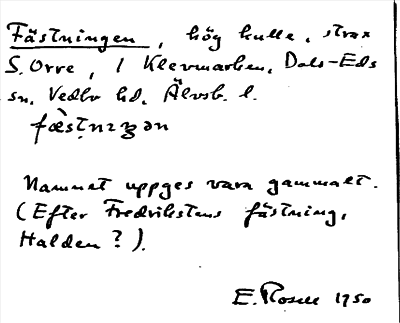 Fästningen, hög kulle, strax
S. Orre, i Klevmarken, Dals-Eds
sn, Vedbo hd, Älvsb. l.
fæ̀stnɪŋən
Namnet uppges vara gammalt.
(Efter Fredrikstens fästning,
Halden?).
E. Rosell 1950